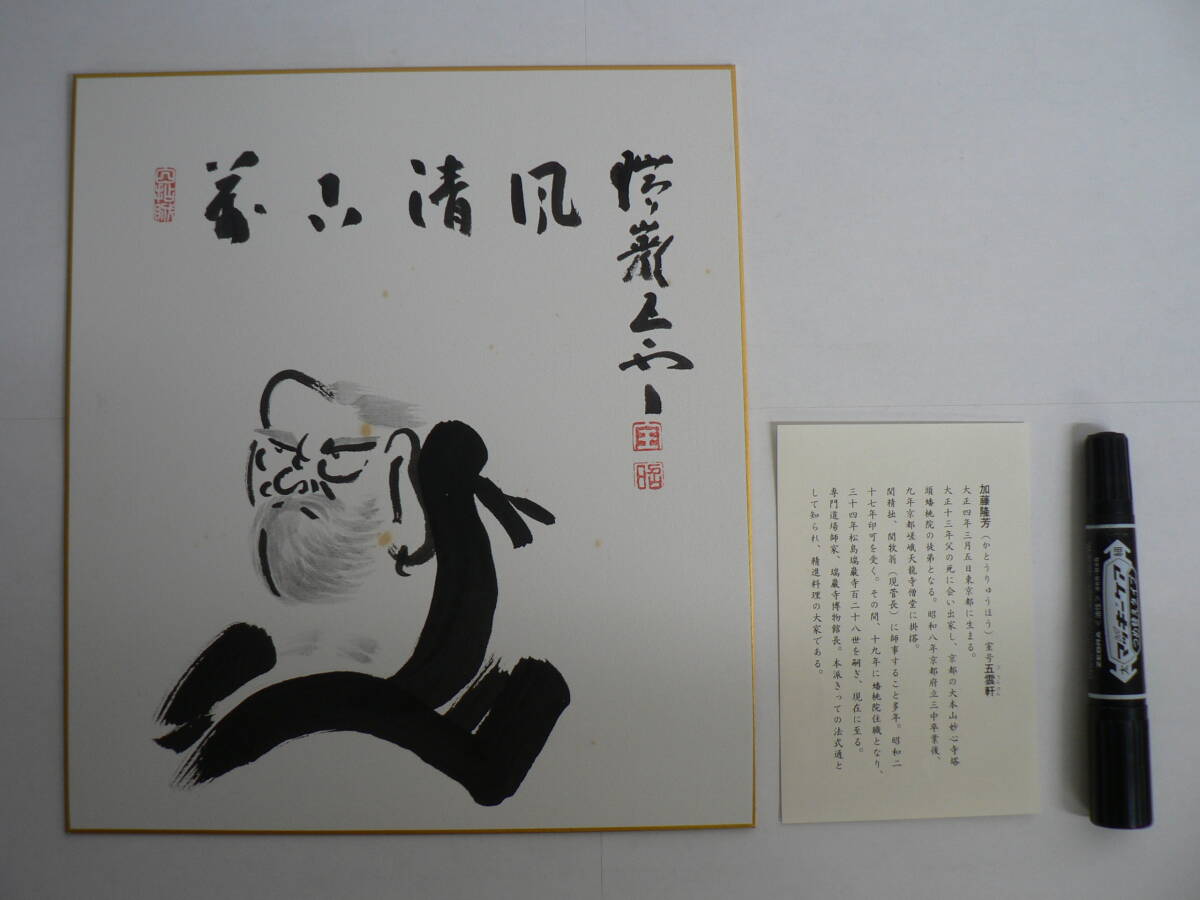 萬古清風
加藤隆芳（かとうりゅうほう）室号五雲軒
大正四年三月五日東京都に生まる。
大正十三年父の死に会い出家し、京都の大本山妙心寺塔
頭蟠桃院の徒弟となる。昭和八年京都府立三中卒業後、
九年京都嵯峨天龍寺僧堂に掛塔。
関精拙、関牧翁（現管長）に師事すること多年。昭和二
十七年印可を受く。その間、十九年に蟠桃院住職となり、
三十四年松島瑞巌寺百二十八世を嗣ぎ、現在に至る。
専門道場師家、瑞巌寺博物館長。本派きっての法式通と
して知られ、精進料理の大家である。
ZEBRA
太